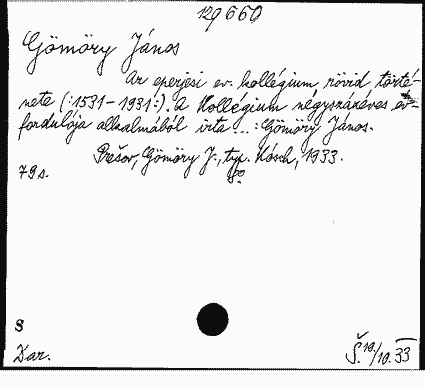 129660
Gömöry János
Az eperjesi ev. kollégium rövid törté-
nete (:1531-1931:). A Kollégium négyszázéves év-
fordulója alkalmából irta ... : Gömöry János.
Prešov, Gömöry J., typ. Kósch, 1933.
79 s. 8°
S
Dar. Š. 19/10. 33